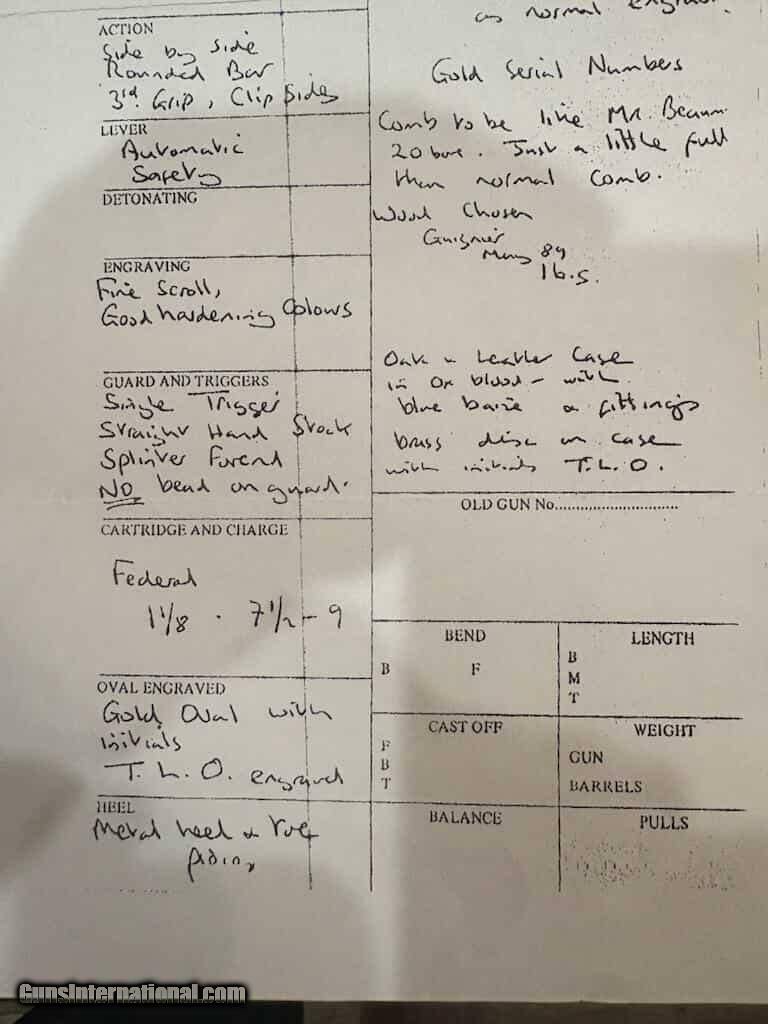 as normal
ACTION
Side by side
Rounded Bar
3rd Grip, Clip Sides
LEVER
Automatic
Safety
DETONATING
ENGRAVING
Fine Scroll,
Good hardening Colours
GUARD AND TRIGGERS
Single Trigger
Straight Hand Stock
Splinter Forend
NO bead on guard.
CARTRIDGE AND CHARGE
Federal
1 1/8 . 7 1/2 - 9
OVAL ENGRAVED
Gold Oval with
initials
T. L. O. engraved
HEEL
Metal heel & toe
Gold Serial Numbers
Comb to be like Mr.
20 bore. Just a little full
than normal comb.
Wood Chosen
89
Oak & Leather Case
in Ox blood - with
blue baize & fittings
brass disc on case
with initials T.L.O.
OLD GUN No..............................
BEND
B F
LENGTH
B
M
T
CAST OFF
F
B
T
WEIGHT
GUN
BARRELS
BALANCE
PULLS
GunsInternational.com